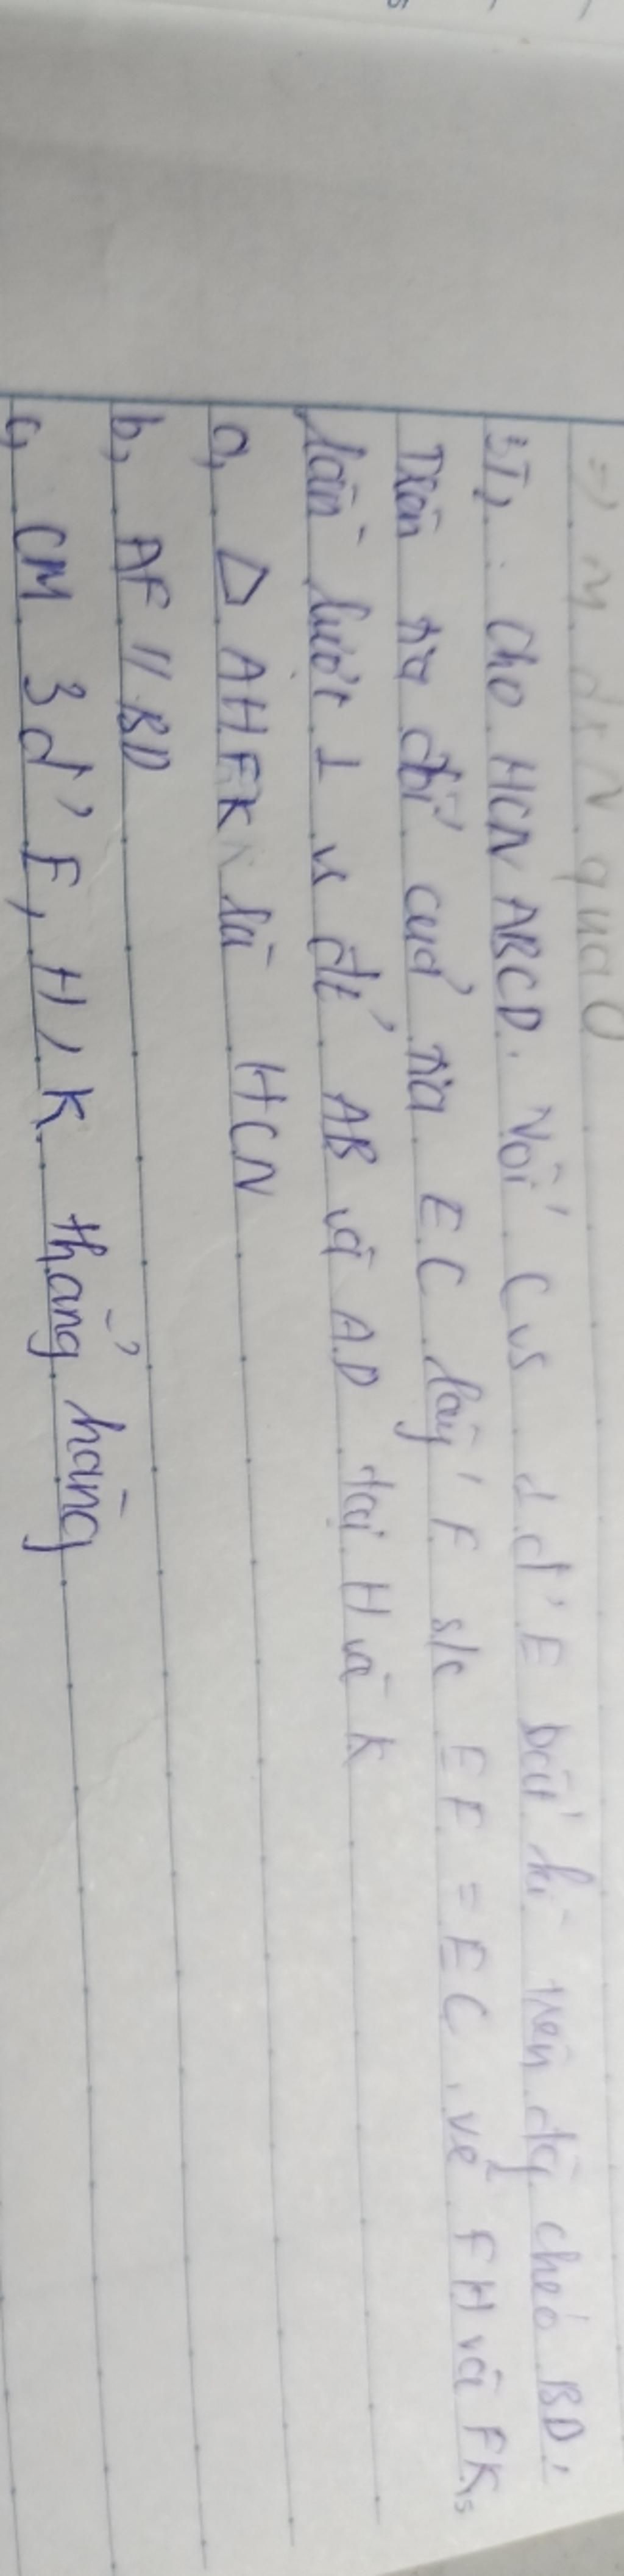 => M đx N qua O
BT2: Cho HCN ABCD. Với CVS 1 đ' E bất kì trên đg chéo BD,
Trên tia đối của tia EC lấy F s/c EF = EC, vẽ FH và FK
lần lượt ⊥ vs đt' AB và AD tại H và K
a, △ AHFK là HCN
b, AF // BD
c, CM 3 đ' E, H, K thẳng hàng